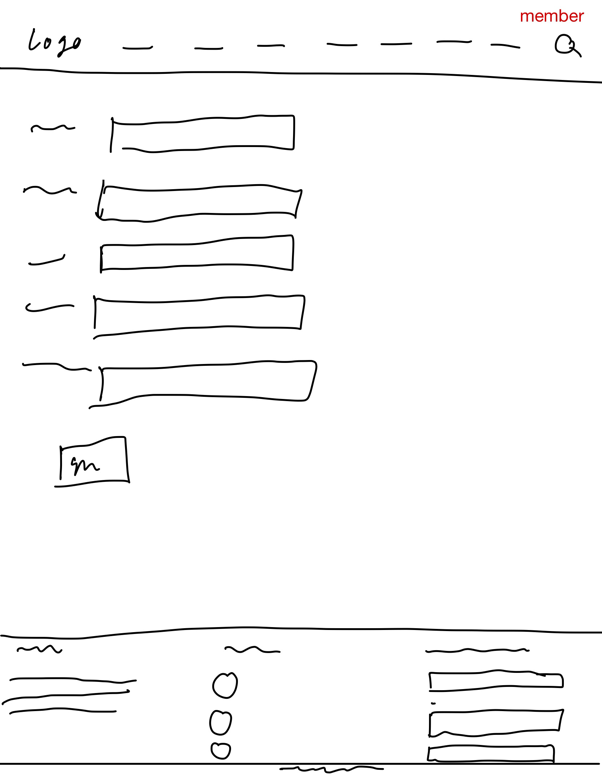 member
Logo